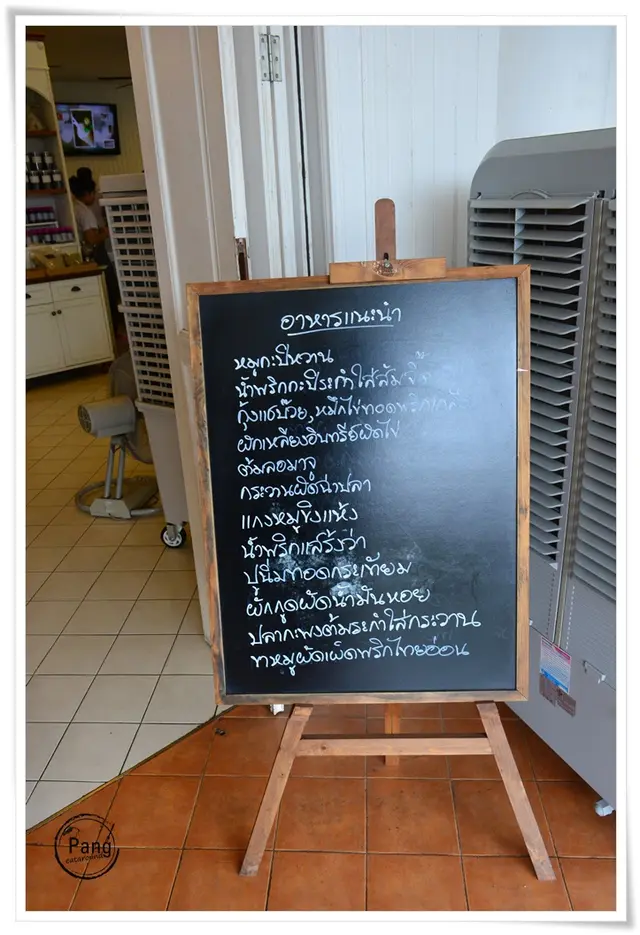 อาหารแนะนำ
หมูกะปิหวาน
น้ำพริกกะปิระกำใส่ส้มจี๊ด
กุ้งแช่บ๊วย, หมึกไข่ทอดพริกเกลือ
ผักเหลียงอินทรีย์ผัดไข่
ต้มลอมาจู
กระวานผัดฉ่าปลา
แกงหมูขิงแห้ง
น้ำพริกแสร้งว่า
ปูนิ่มทอดกระเทียม
ผักกูดผัดน้ำมันหอย
ปลากะพงต้มระกำใส่กระวาน
ขาหมูผัดเผ็ดพริกไทยอ่อน
Pang